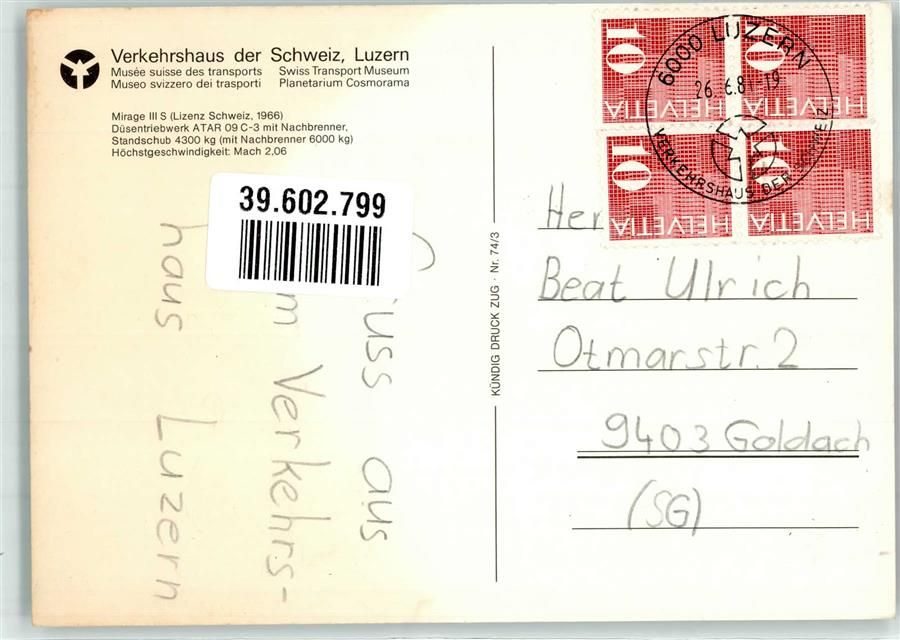 Verkehrshaus der Schweiz, Luzern
Musée suisse des transports Swiss Transport Museum
Museo svizzero dei trasporti Planetarium Cosmorama
Mirage III S (Lizenz Schweiz, 1966)
Düsentriebwerk ATAR 09 C-3 mit Nachbrenner,
Standschub 4300 kg (mit Nachbrenner 6000 kg)
Höchstgeschwindigkeit: Mach 2,06
39.602.799
uss aus
m Verkehrs-
haus Luzern
KÜNDIG DRUCK ZUG · Nr. 74/3
10 HELVETIA
10 HELVETIA
10 HELVETIA
10 HELVETIA
6000 LUZERN
VERKEHRSHAUS DER SCHWEIZ
Her
Beat Ulrich
Otmarstr. 2
9403 Goldach
(SG)